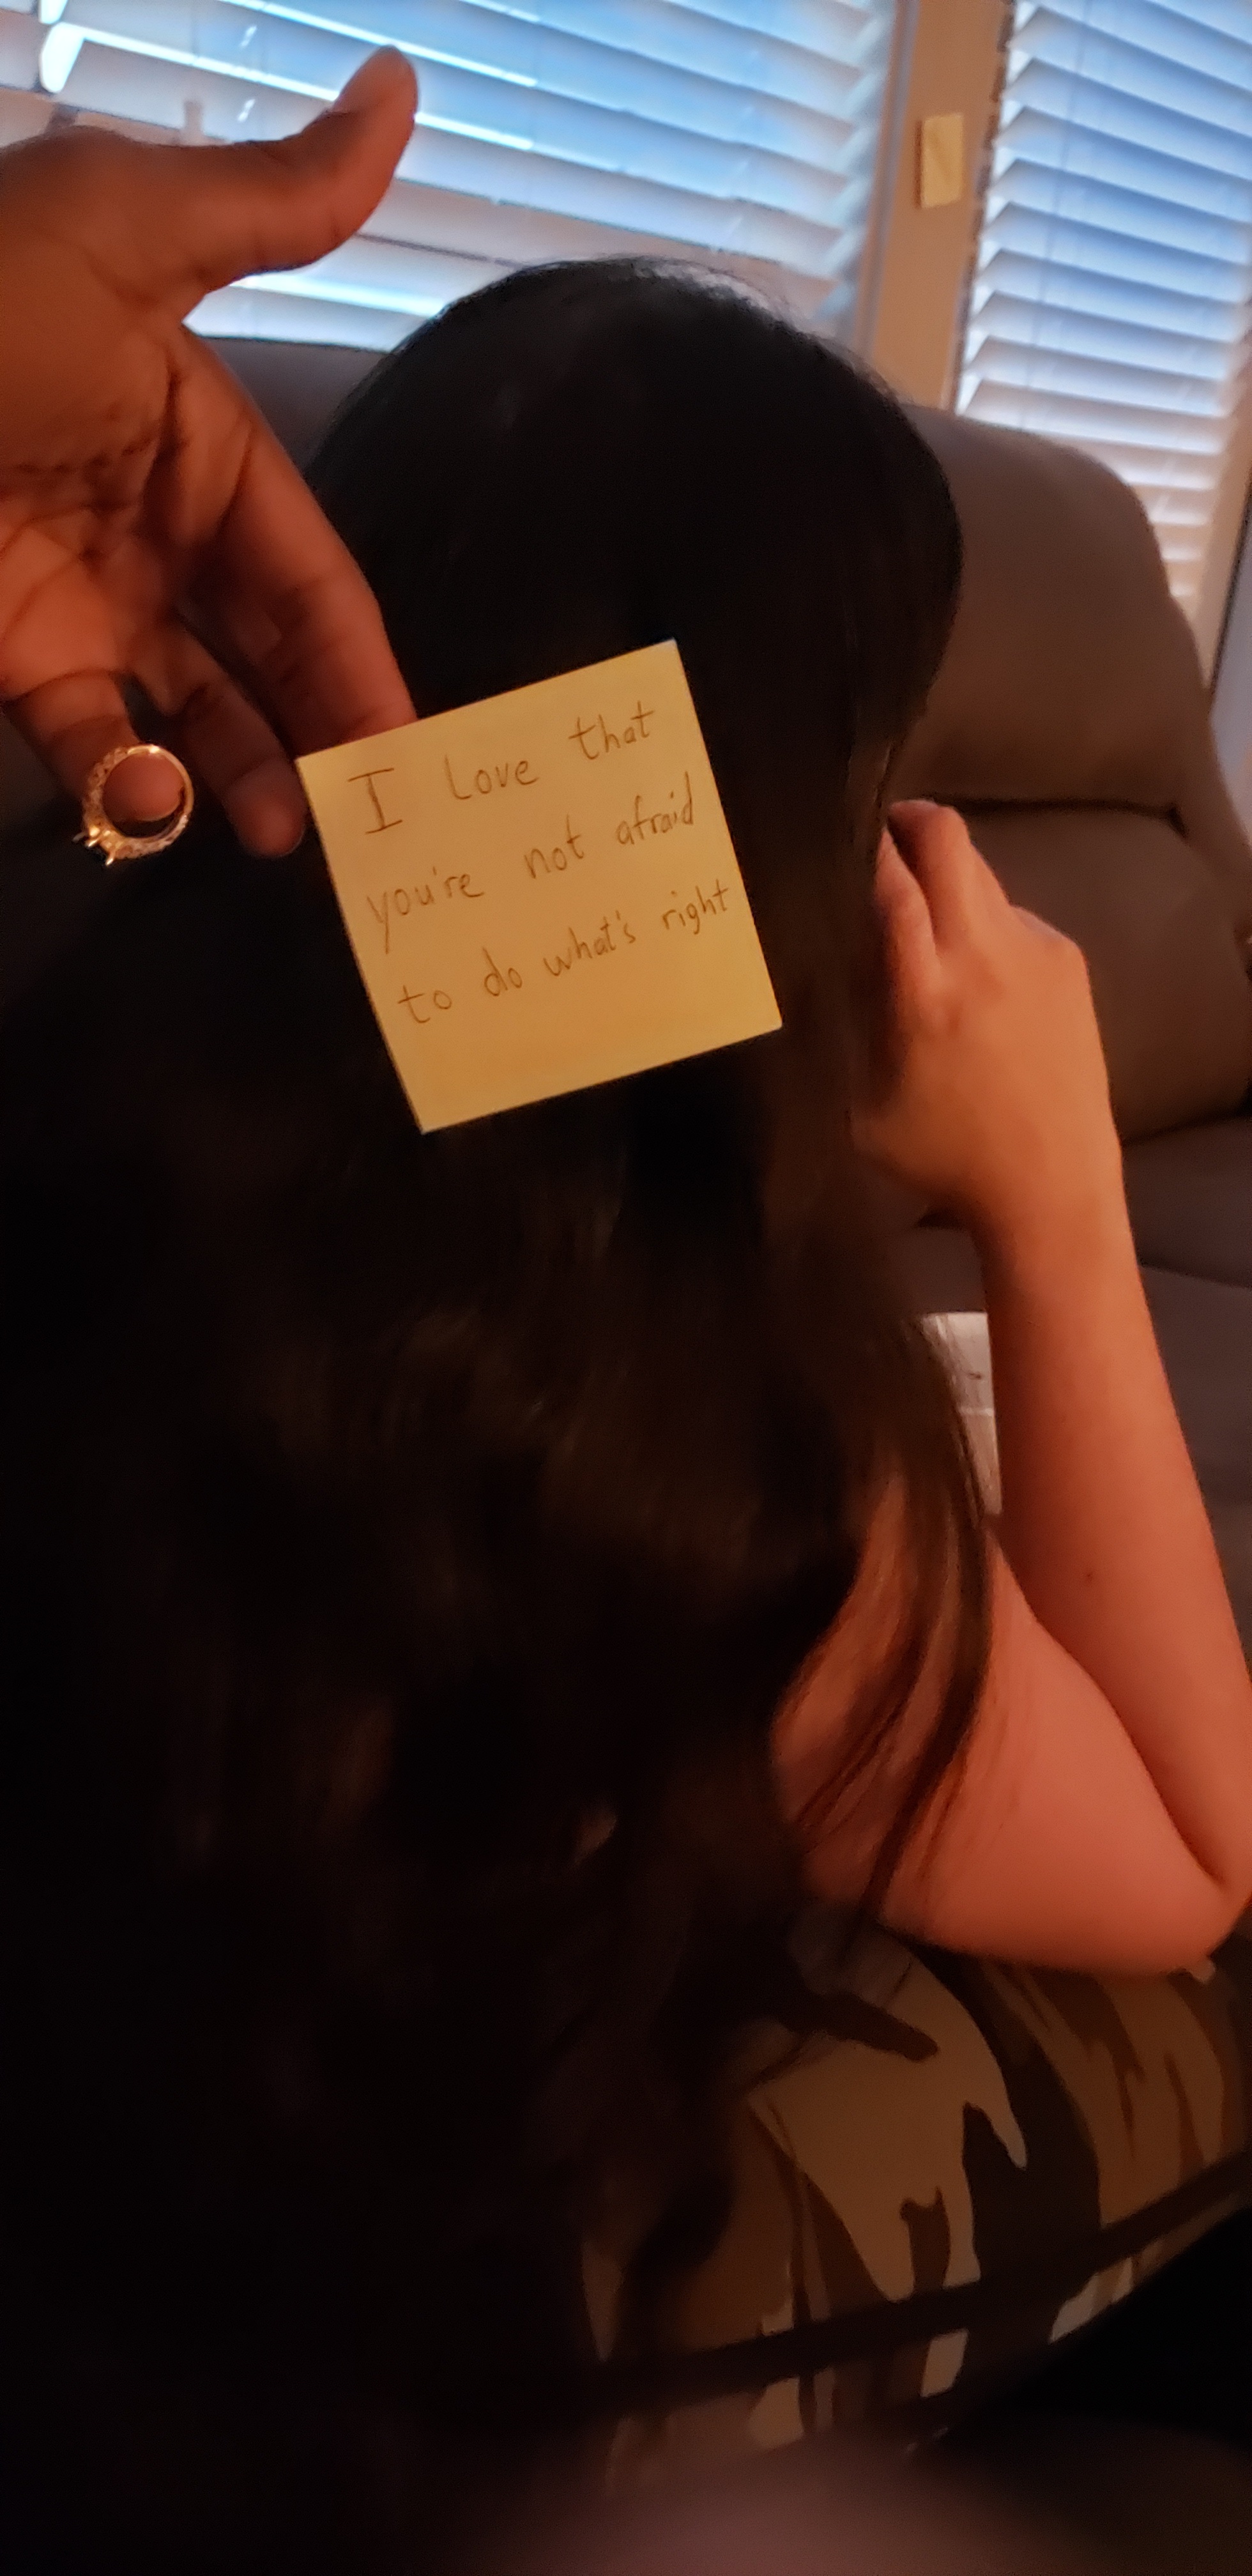 I Love that
you're not afraid
to do what's right